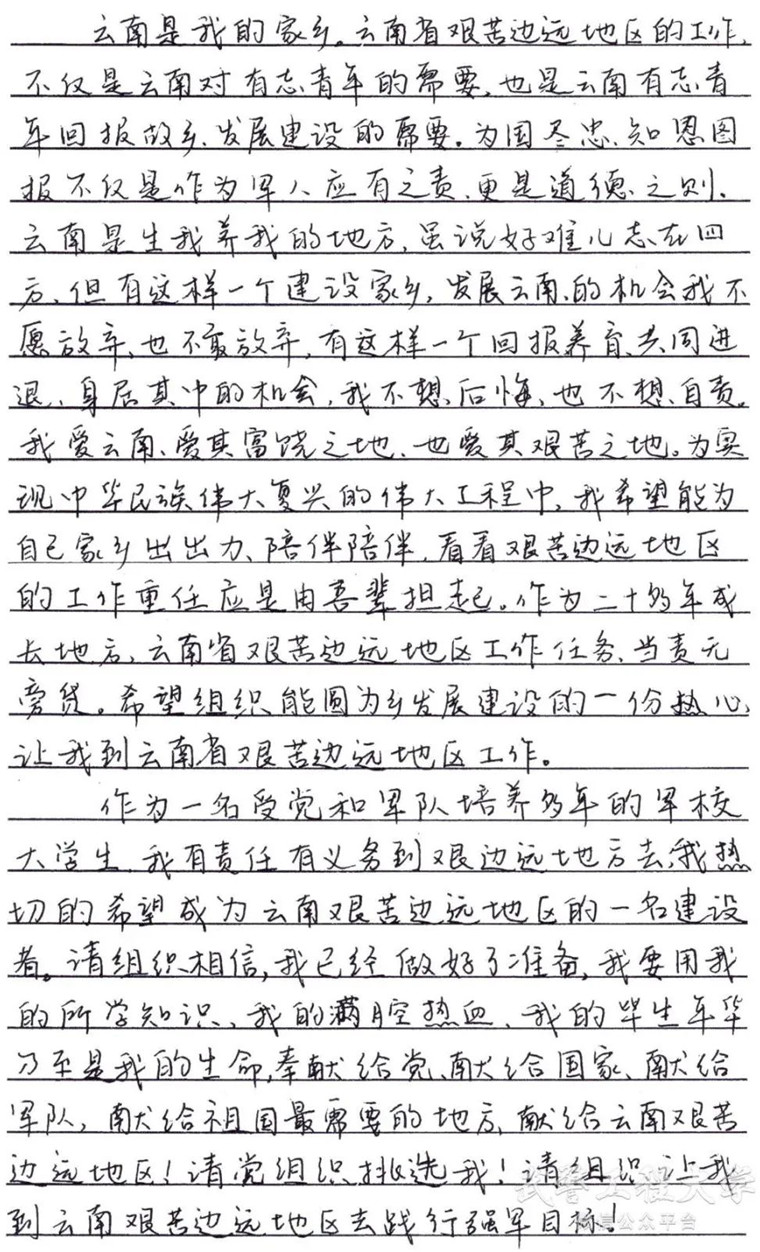 云南是我的家乡。云南省艰苦边远地区的工作,
不仅是云南对有志青年的需要,也是云南有志青
年回报故乡、发展建设的需要。为国尽忠、知恩图
报不仅是作为军人应有之责、更是道德之则。
云南是生我养我的地方,虽说好难儿志在四
方、但有这样一个建设家乡,发展云南的机会我不
愿放弃、也不敢放弃,有这样一个回报养育、共同进
退、身居其中的机会,我不想后悔、也不想自责。
我爱云南、爱其富饶之地、也爱其艰苦之地。为实
现中华民族伟大复兴的伟大工程中,我希望能为
自己家乡出出力、陪伴陪伴,看看艰苦边远地区
的工作重任应是由吾辈担起。作为二十多年成
长地方,云南省艰苦边远地区工作任务、当责无
旁贷。希望组织能圆为乡发展建设的一份热心,
让我到云南省艰苦边远地区工作。
作为一名受党和军队培养多年的军校
大学生,我有责任有义务到艰边远地方去,我热
切的希望成为云南艰苦边远地区的一名建设
者。请组织相信,我已经做好了准备,我要用我
的所学知识、我的满腔热血、我的毕生年华
乃至是我的生命,奉献给党、献给国家、献给
军队,献给祖国最需要的地方,献给云南艰苦
边远地区!请党组织挑选我!请组织让我
到云南艰苦边远地区去践行强军目标!
武警工程大学
微信公众平台